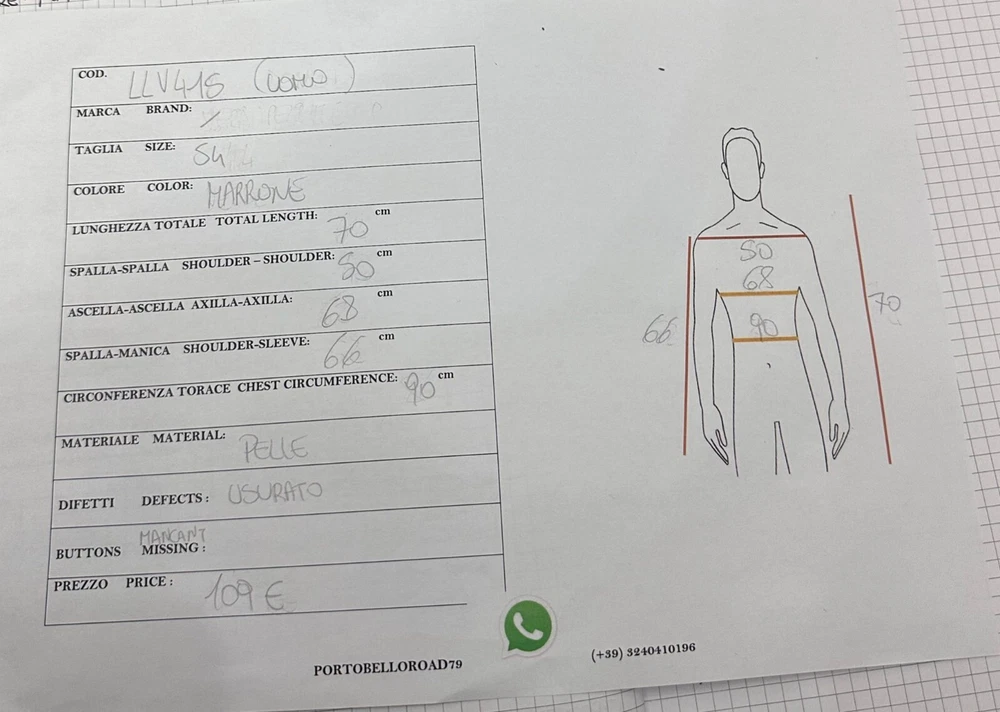 COD. LLV415 (UOMO)
MARCA BRAND: /
TAGLIA SIZE: 54
COLORE COLOR: MARRONE
LUNGHEZZA TOTALE TOTAL LENGTH: 70 cm
SPALLA-SPALLA SHOULDER – SHOULDER: 50 cm
ASCELLA-ASCELLA AXILLA-AXILLA: 68 cm
SPALLA-MANICA SHOULDER-SLEEVE: 66 cm
CIRCONFERENZA TORACE CHEST CIRCUMFERENCE: 90 cm
MATERIALE MATERIAL: PELLE
DIFETTI DEFECTS: USURATO
MANCANT
BUTTONS MISSING:
PREZZO PRICE: 109 €
50
68
66
90
70
PORTOBELLOROAD79
(+39) 3240410196